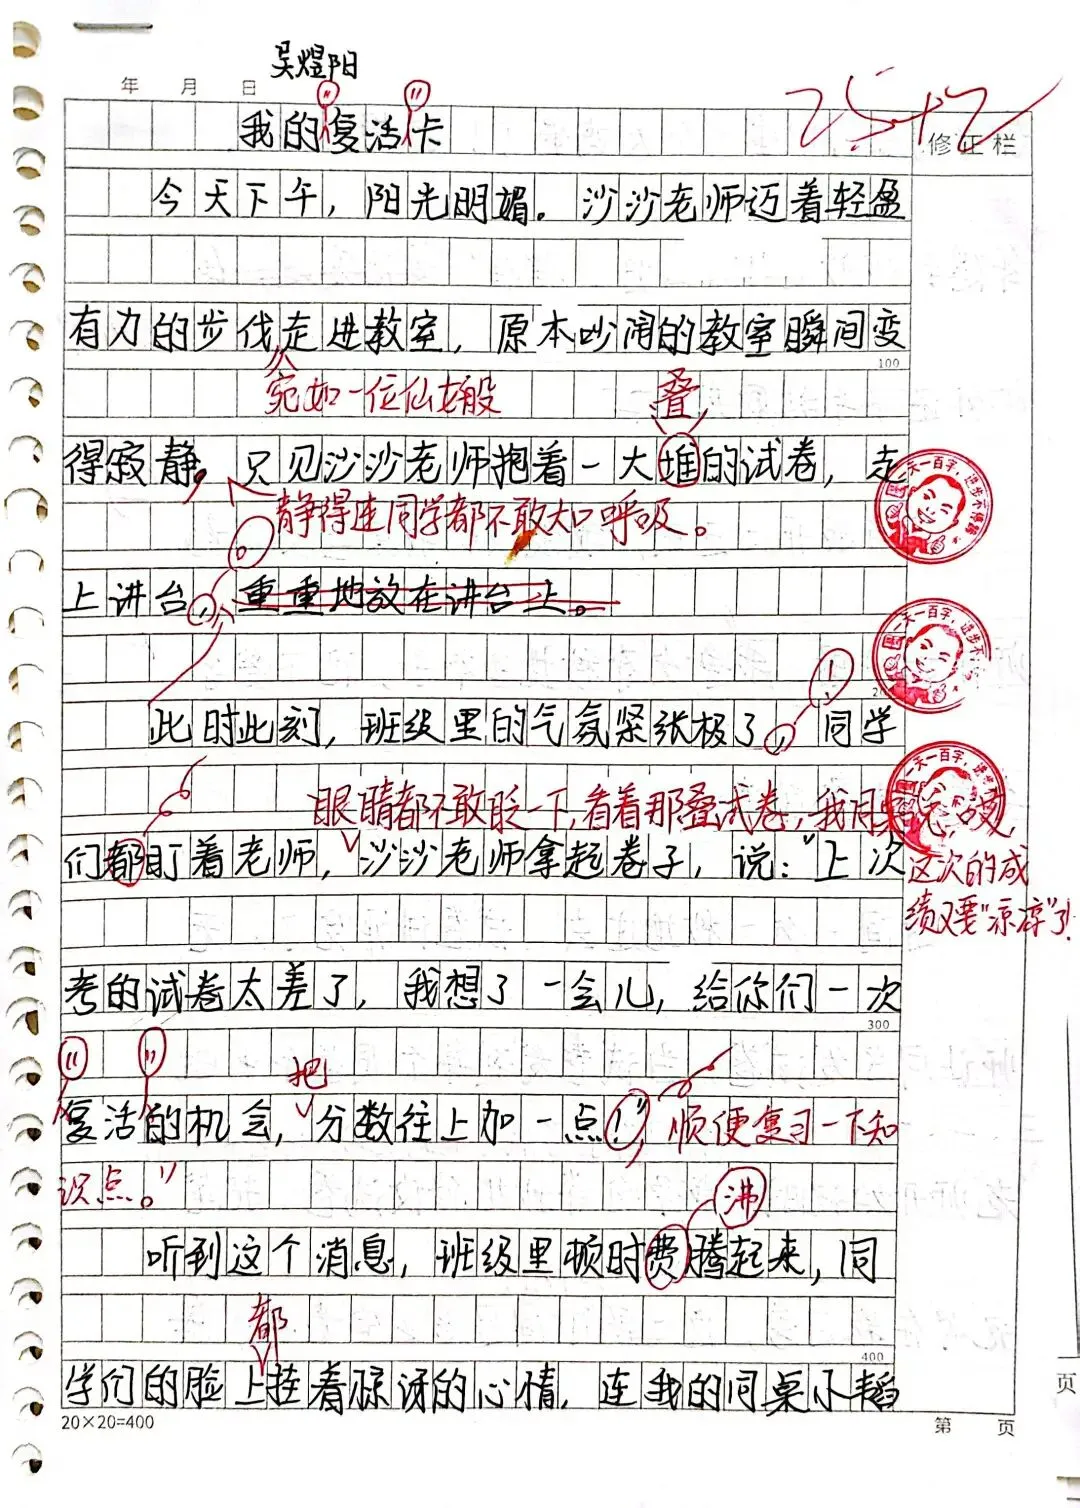 吴煜阳
年 月 日
25+2
修正栏
我的“复活”卡
今天下午，阳光明媚。沙沙老师迈着轻盈
有力的步伐走进教室，原本吵闹的教室瞬间变
100
宛如一位仙女般
叠
得寂静。只见沙沙老师抱着一大堆的试卷，走
静得连同学都不敢大口呼吸。
天一百字，进步不
上讲台，重重地放在讲台上。
一天一百字，进步不
此时此刻，班级里的气氛紧张极了，！同学
一天一百字，进
眼睛都不敢眨一下，看着那叠试卷，我同桌说，哎，
们都盯着老师，沙沙老师拿起卷子，说：“上次
这次的成
绩又要“凉凉”了！
考的试卷太差了，我想了一会儿，给你们一次
300
把
“复活”的机会，分数往上加一点！”，顺便复习一下知
识点。”
沸
听到这个消息，班级里顿时费腾起来，同
都
400
学们的脸上挂着惊讶的心情，连我的同桌小韬
20×20=400
第 页
页